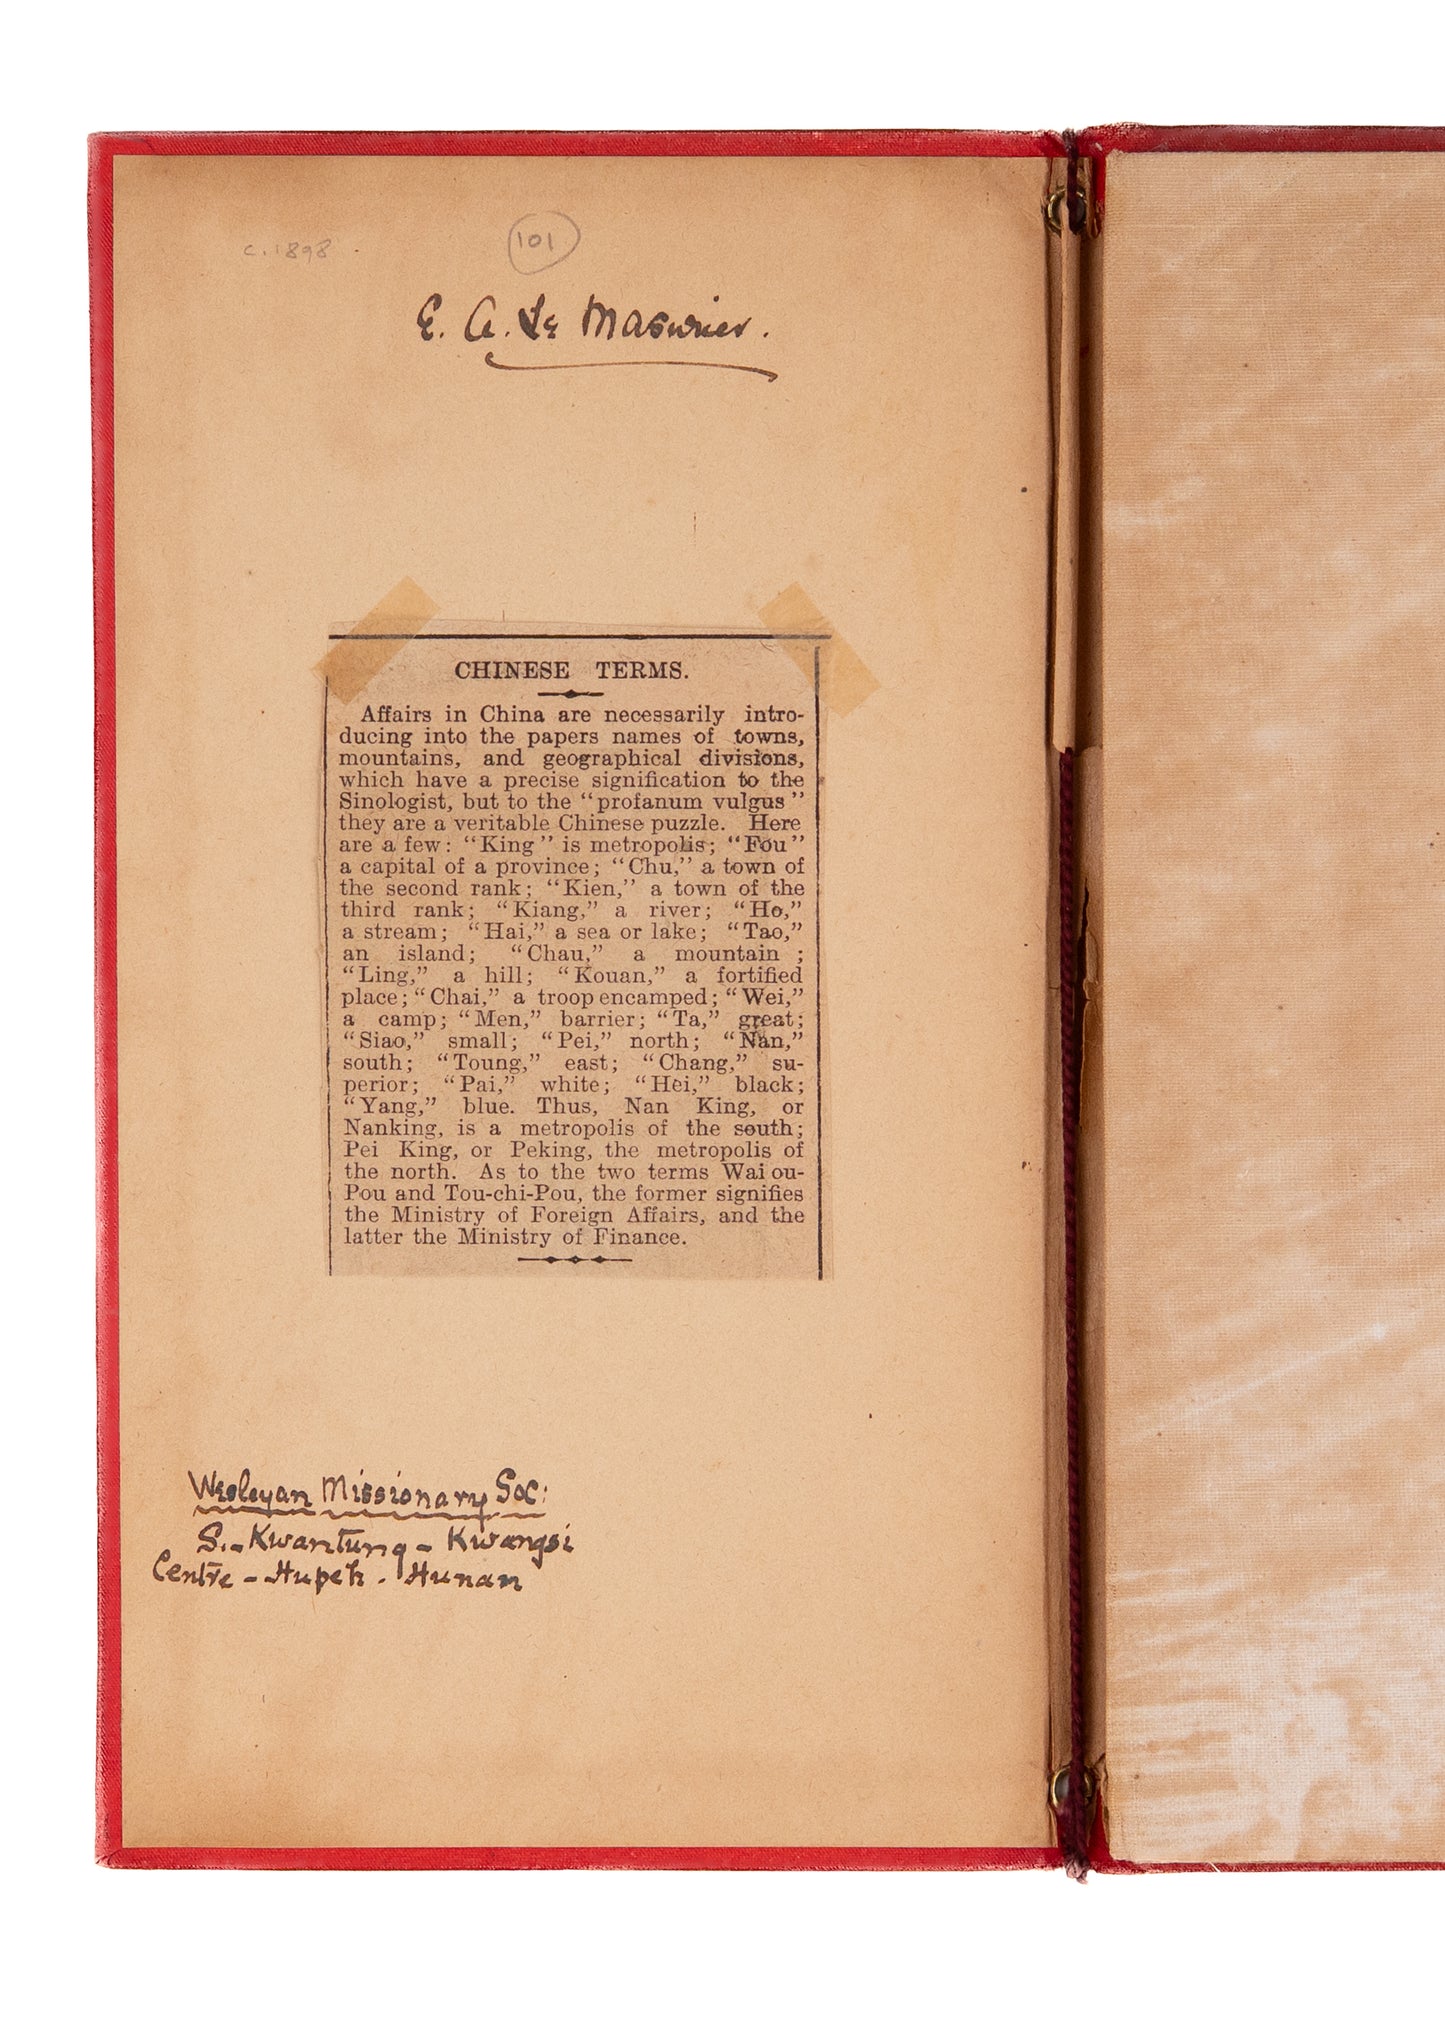 c. 1898
101
E. A. Le Masurier.
CHINESE TERMS.
Affairs in China are necessarily intro-
ducing into the papers names of towns,
mountains, and geographical divisions,
which have a precise signification to the
Sinologist, but to the “profanum vulgus”
they are a veritable Chinese puzzle. Here
are a few: “King” is metropolis; “Fou”
a capital of a province; “Chu,” a town of
the second rank; “Kien,” a town of the
third rank; “Kiang,” a river; “Ho,”
a stream; “Hai,” a sea or lake; “Tao,”
an island; “Chau,” a mountain ;
“Ling,” a hill; “Kouan,” a fortified
place; “Chai,” a troop encamped; “Wei,”
a camp; “Men,” barrier; “Ta,” great;
“Siao,” small; “Pei,” north; “Nan,”
south; “Toung,” east; “Chang,” su-
perior; “Pai,” white; “Hei,” black;
“Yang,” blue. Thus, Nan King, or
Nanking, is a metropolis of the south;
Pei King, or Peking, the metropolis of
the north. As to the two terms Wai ou-
Pou and Tou-chi-Pou, the former signifies
the Ministry of Foreign Affairs, and the
latter the Ministry of Finance.
Wesleyan Missionary Soc:
S. - Kwantung - Kwangsi
Centre - Hupeh - Hunan